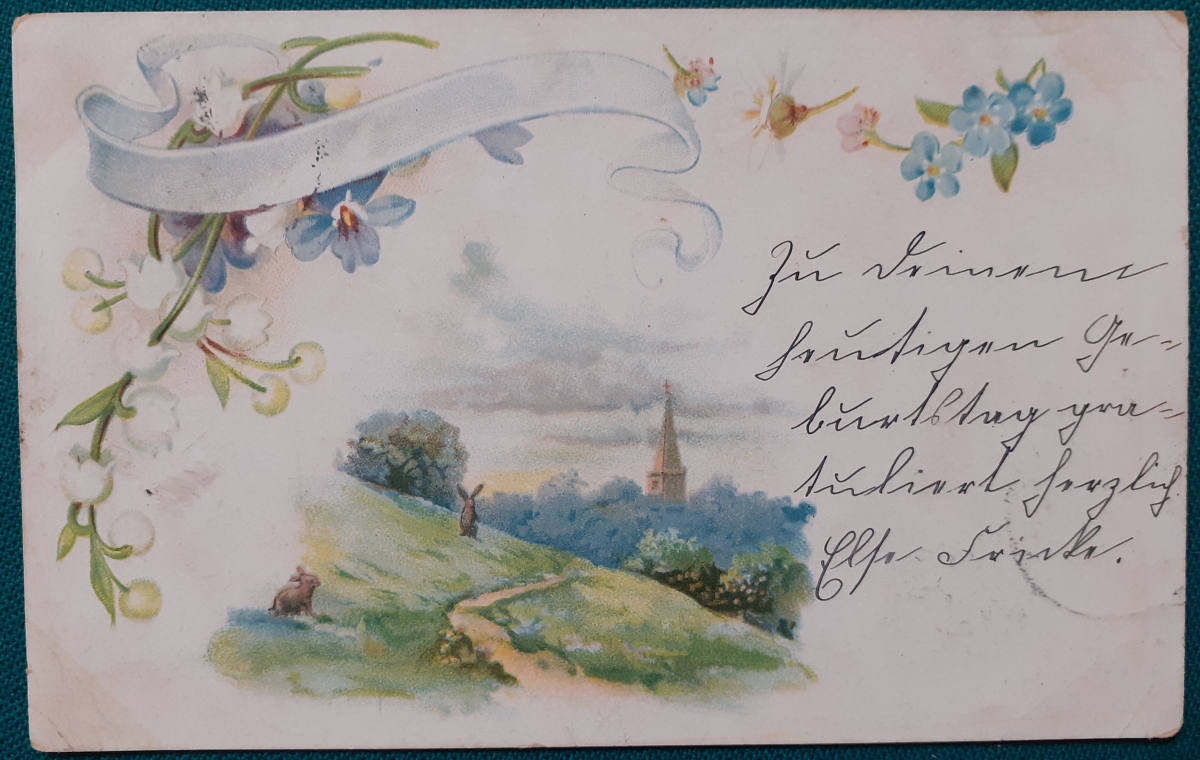 Zu Deinem
heutigen Ge-
burtstag gra-
tuliert herzlich
Else Fricke.